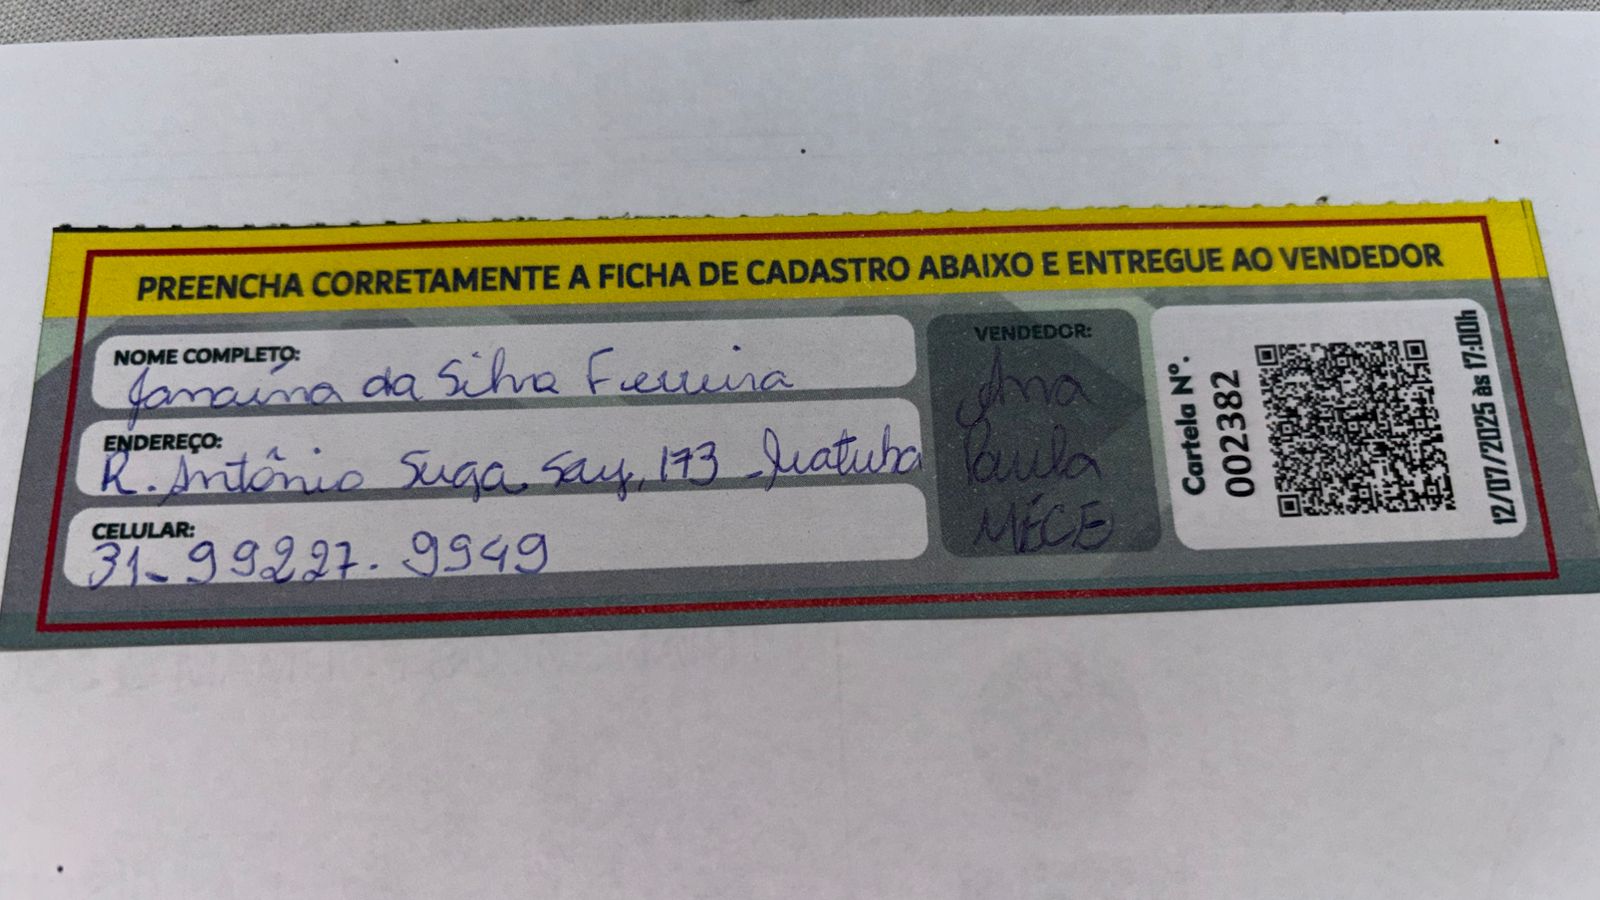 PREENCHA CORRETAMENTE A FICHA DE CADASTRO ABAIXO E ENTREGUE AO VENDEDOR
NOME COMPLETO:
Janaína da Silva Ferreira
ENDEREÇO:
R. Antônio Suga Say, 173 - Juatuba
CELULAR:
31-99227-9949
VENDEDOR:
Ana
Paula
MÉCE
Cartela Nº.
002382
12/07/2025 às 17:00h